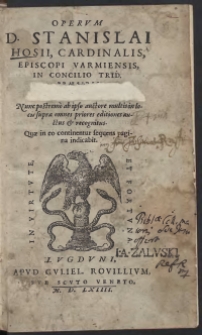 OPERVM
D. STANISLAI
HOSII, CARDINALIS,
EPISCOPI VARMIENSIS,
IN CONCILIO TRID.
Nunc postremò ab ipso auctore multis in lo-
cis supra omnes priores editiones au-
ctus & recognitus.
Quæ in eo continentur sequens pagi-
na indicabit.
IN VIRTVTE,
ET FORTVNA.
I.A. ZALUSKI
LVGDVNI,
APVD GVLIEL. ROVILLIVM,
SVB SCVTO VENETO.
M. D. LXIIII.